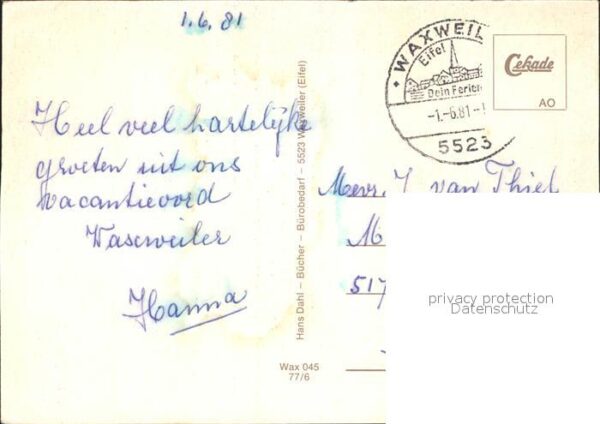 1.6.81
Heel veel hartelijke
groeten uit ons
vacantieoord
Waxweiler
Hanna
Hans Dahl – Bücher – Bürobedarf – 5523 Waxweiler (Eifel)
Wax 045
77/6
WAXWEIL
Eifel
Dein Ferien
-1.-6.81-1
5523
Cekade
AO
Mevr. J. van Thiel
M
517
privacy protection
Datenschutz